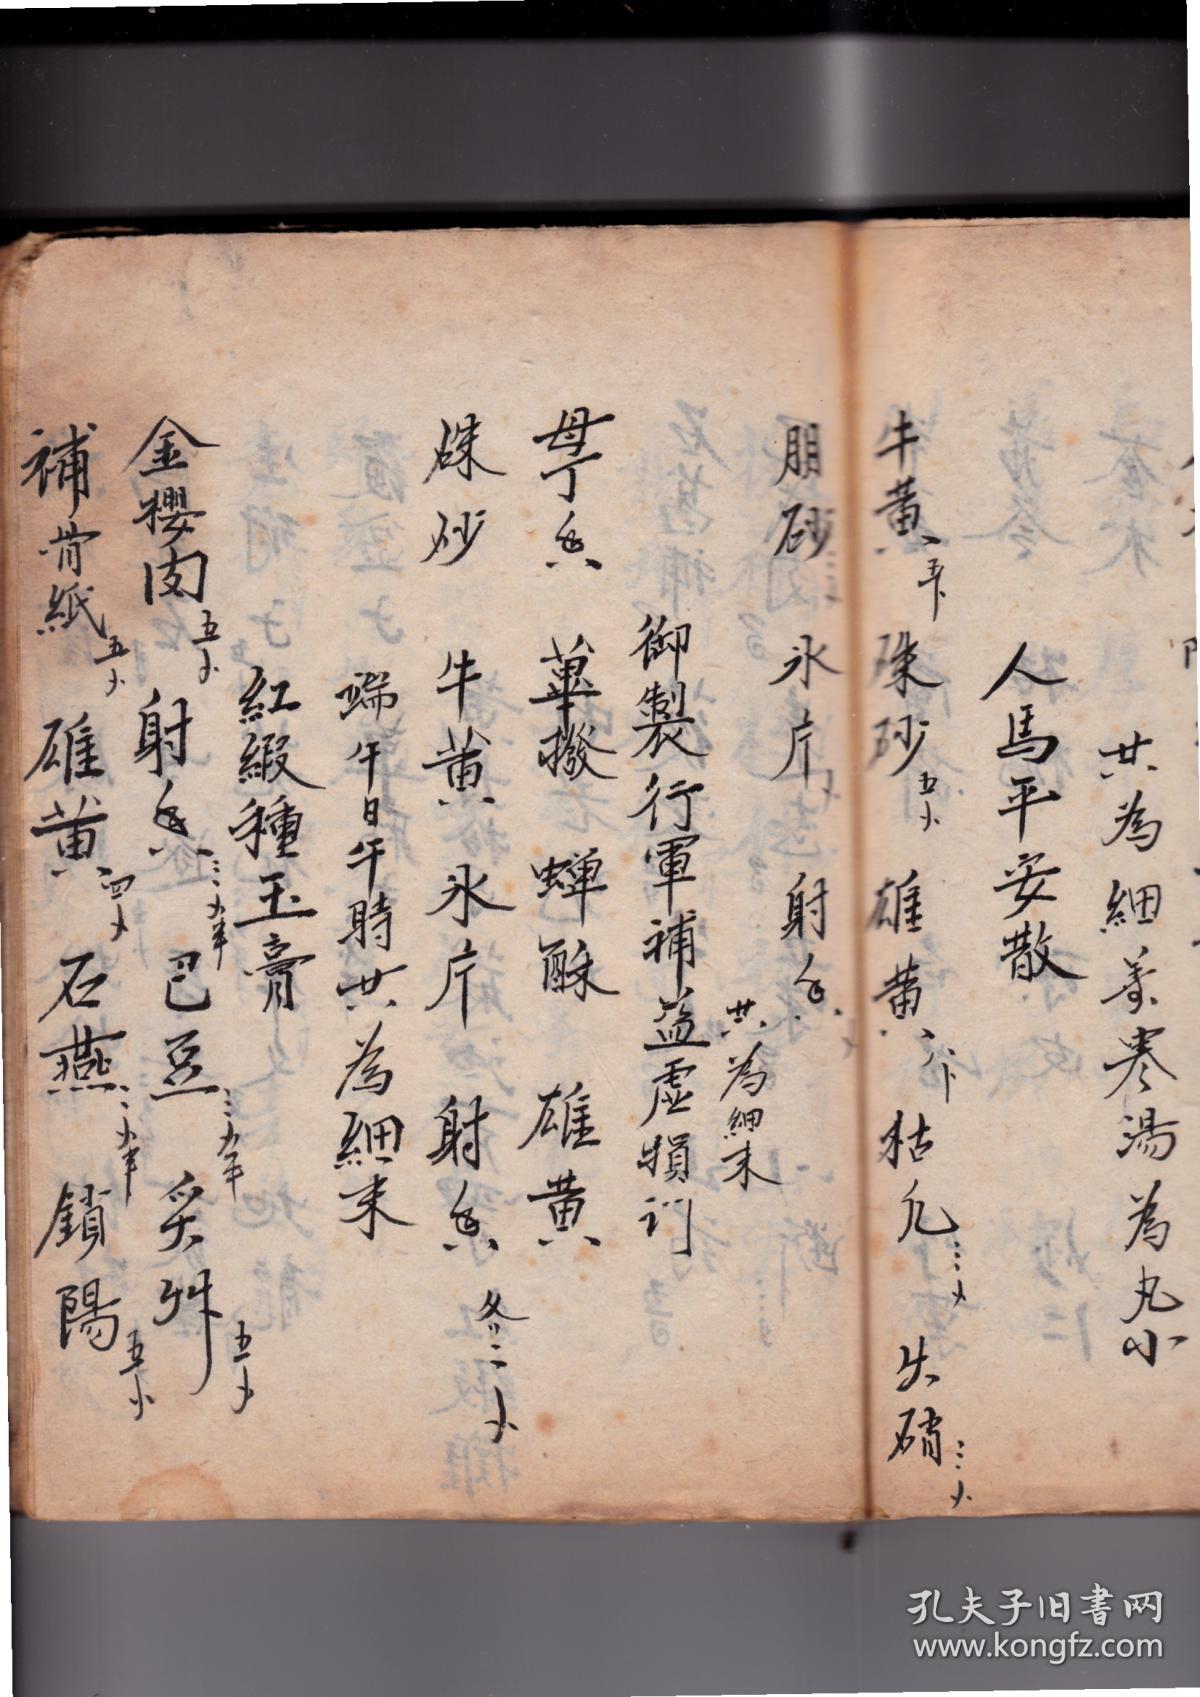 共為細莱寒湯為丸小
人馬平安散
牛黄 硃砂五分 雄黄 枯凡三分 火硝三分
朋砂 氷片 射香
共為細末
御製行軍補益虛損門
母丁香 蓽撥 蟬酥 雄黄
硃砂 牛黄 氷片 射香 各二分
端午日午時共為細末
紅緞種玉膏
金櫻肉五分 射香三分半 巴豆三分半 艸五分
補骨紙五分 雄黄四分 石燕三分半 鎖陽五分
孔夫子旧書网
www.kongfz.com